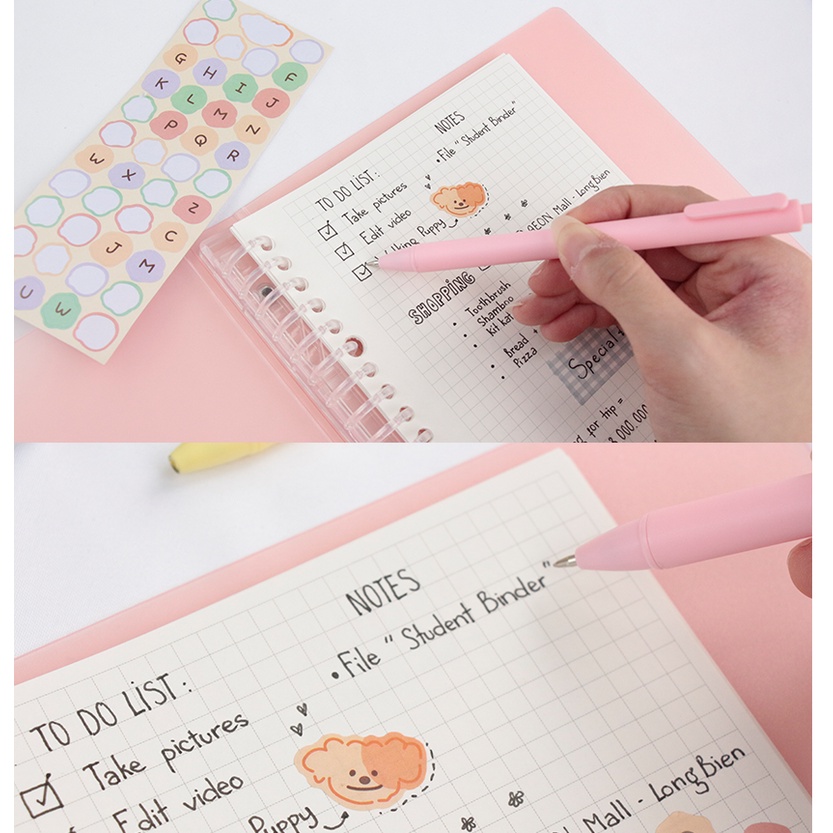 G
H
F
K
L
I
J
P
M
N
W
Q
X
R
Z
J
C
U
W
M
NOTES
• File " Student Binder"
TO DO LIST :
Take pictures
Edit video
Puppy
AEON Mall - Long Bien
SHOPPING
• Toothbrush
• Shamboo
• Kit kat
• Bread +
• Pizza
Special
for trip =
000.000
NOTES
• File " Student Binder"
TO DO LIST :
Take pictures
Edit video
Puppy
Mall - Long Bien